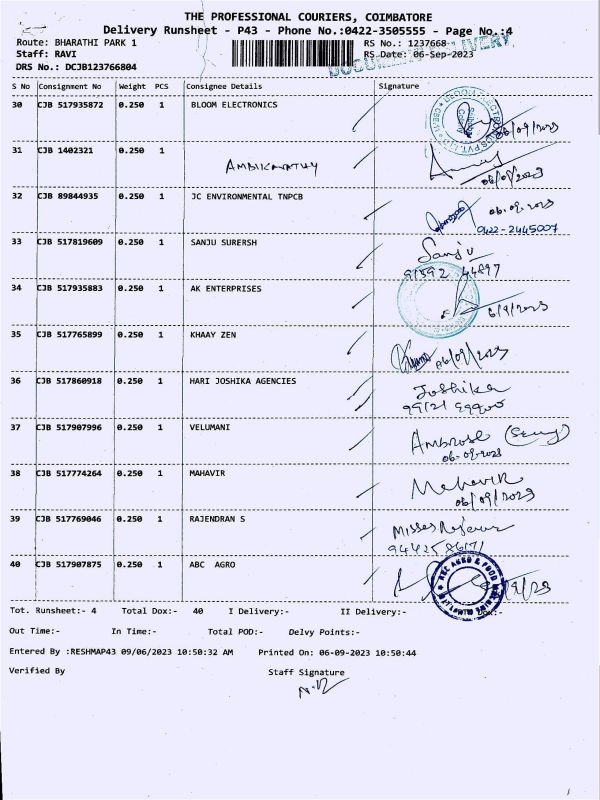 THE PROFESSIONAL COURIERS, COIMBATORE
Delivery Runsheet - P43 - Phone No.:0422-3505555 - Page No.:4
Route: BHARATHI PARK 1 RS No.: 1237668
Staff: RAVI RS Date: 06-Sep-2023
DRS No.: DCJB123766804
S No Consignment No Weight PCS Consignee Details Signature
30 CJB 517935872 0.250 1 BLOOM ELECTRONICS
06/09/2023
31 CJB 1402321 0.250 1
06/09/2023
32 CJB 89844935 0.250 1 JC ENVIRONMENTAL TNPCB
06.09.2023
0422-2445007
33 CJB 517819609 0.250 1 SANJU SURERSH Sanju
91592 44897
34 CJB 517935883 0.250 1 AK ENTERPRISES
6/9/2023
35 CJB 517765899 0.250 1 KHAAY ZEN
06/09/2023
36 CJB 517860918 0.250 1 HARI JOSHIKA AGENCIES Joshika
37 CJB 517907996 0.250 1 VELUMANI Ambrose
06-09-2023
38 CJB 517774264 0.250 1 MAHAVIR Mahavir
06/09/2023
39 CJB 517769046 0.250 1 RAJENDRAN S
40 CJB 517907875 0.250 1 ABC AGRO
Tot. Runsheet:- 4 Total Dox:- 40 I Delivery:- II Delivery:- Dox:-
Out Time:- In Time:- Total POD:- Delvy Points:-
Entered By :RESHMAP43 09/06/2023 10:50:32 AM Printed On: 06-09-2023 10:50:44
Verified By Staff Signature